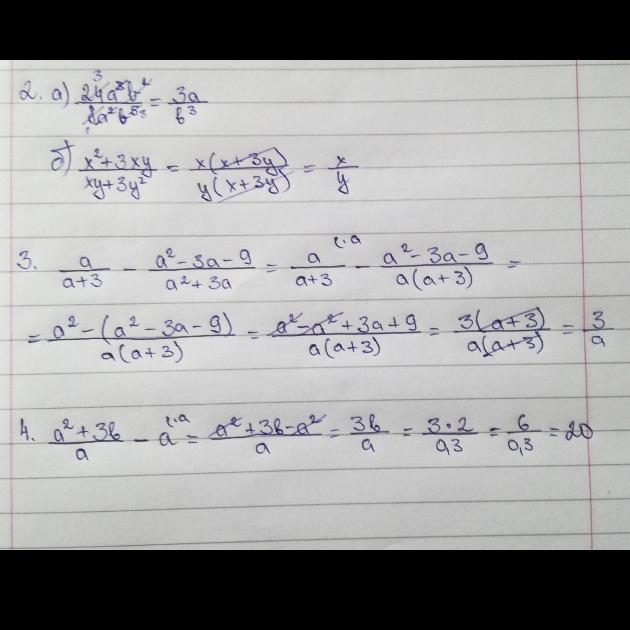 2. а) 24a³b²/8a²b⁵ = 3a/b³
б) x²+3xy/xy+3y² = x(x+3y)/y(x+3y) = x/y
3. a/a+3 - a²-3a-9/a²+3a = a/a+3 (·a - a²-3a-9/a(a+3) =
= a²-(a²-3a-9)/a(a+3) = a²-a²+3a+9/a(a+3) = 3(a+3)/a(a+3) = 3/a
4. a²+3b/a - a (·a = a²+3b-a²/a = 3b/a = 3·2/0,3 = 6/0,3 = 20